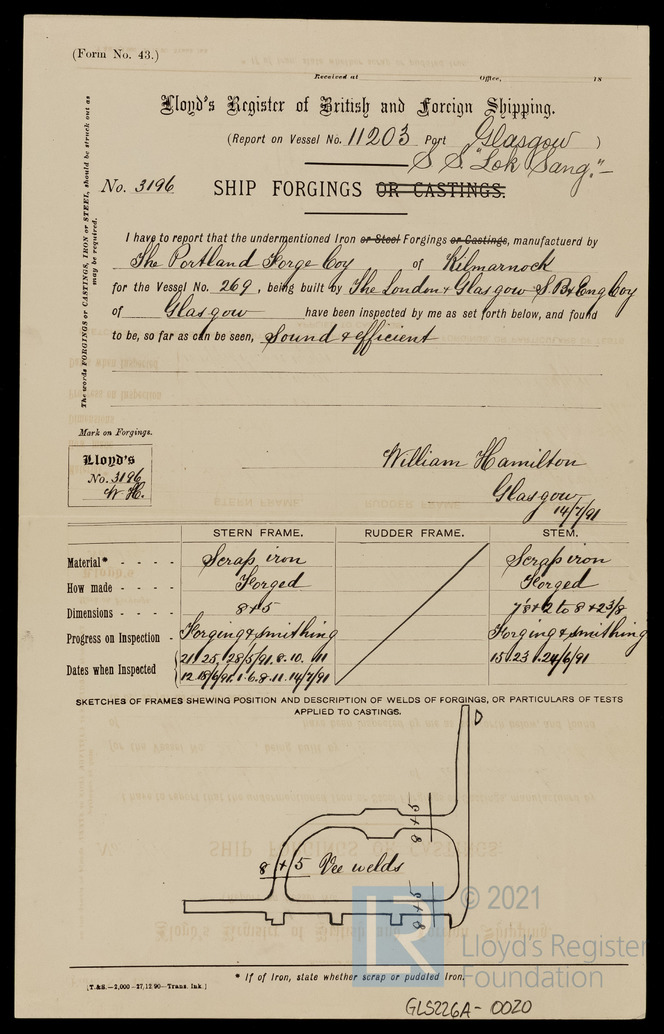 (Form No. 43.)
Received at Office, 18
Lloyd's Register of British and Foreign Shipping.
(Report on Vessel No. 11203 Port Glasgow )
S.S. "Lok Sang."-
No. 3196 SHIP FORGINGS OR CASTINGS.
The words FORGINGS or CASTINGS, IRON or STEEL, should be struck out as may be required.
I have to report that the undermentioned Iron or Steel Forgings or Castings, manufactuerd by
The Portland Forge Coy of Kilmarnock
for the Vessel No. 269, being built by The London & Glasgow S.B & Eng Coy
of Glasgow have been inspected by me as set forth below, and found
to be, so far as can be seen, Sound & efficient
Mark on Forgings.
Lloyd's
No. 3196
W H.
William Hamilton
Glasgow
14/7/91
STERN FRAME. RUDDER FRAME. STEM.
Material* - - - - Scrap iron Scrap iron
How made - - - - Forged Forged
Dimensions - - - - 8 + 5
Progress on Inspection - Forging & smithing Forging & smithing
Dates when Inspected 21. 25, 28/5/91. 8. 10. 11 15. 23. 24/6/91
14/7/91
SKETCHES OF FRAMES SHEWING POSITION AND DESCRIPTION OF WELDS OF FORGINGS, OR PARTICULARS OF TESTS
APPLIED TO CASTINGS.
D
8 + 5
8 + 5 Vee welds
8 + 5
© 2021
Lloyd's Register
Foundation
* If of Iron, state whether scrap or puddled Iron.
[T.&S.—2,000—27,12,90—Trans. Ink.]
GLS226A-0020